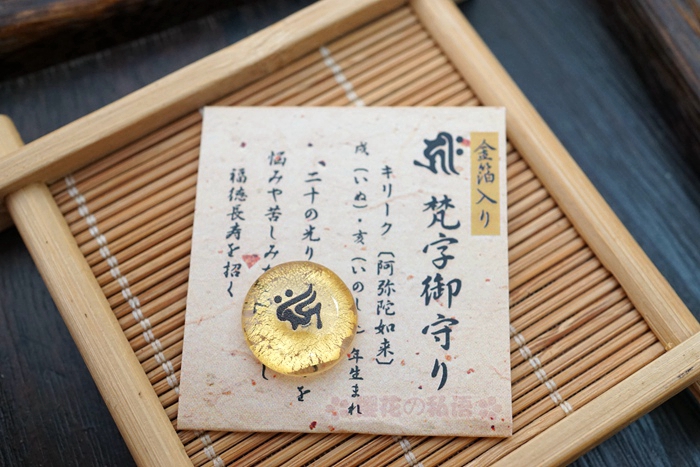 金箔入り
梵字御守り
キリーク〔阿弥陀如来〕
戌(いぬ)・亥(いのし 年生まれ
二十の光り を
悩みや苦しみ し
福徳長寿を招く
櫻花の私语